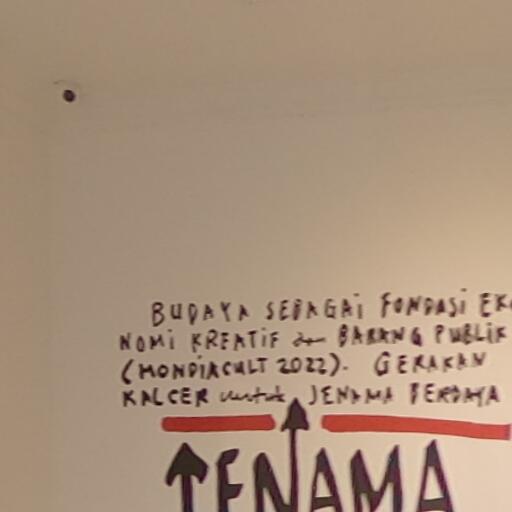 BUDAYA SEBAGAI FONDASI EKO
NOMI KREATIF dan BARANG PUBLIK
(MONDIACULT 2022). GERAKAN
KALCER untuk JENAMA BERDAYA
JENAMA